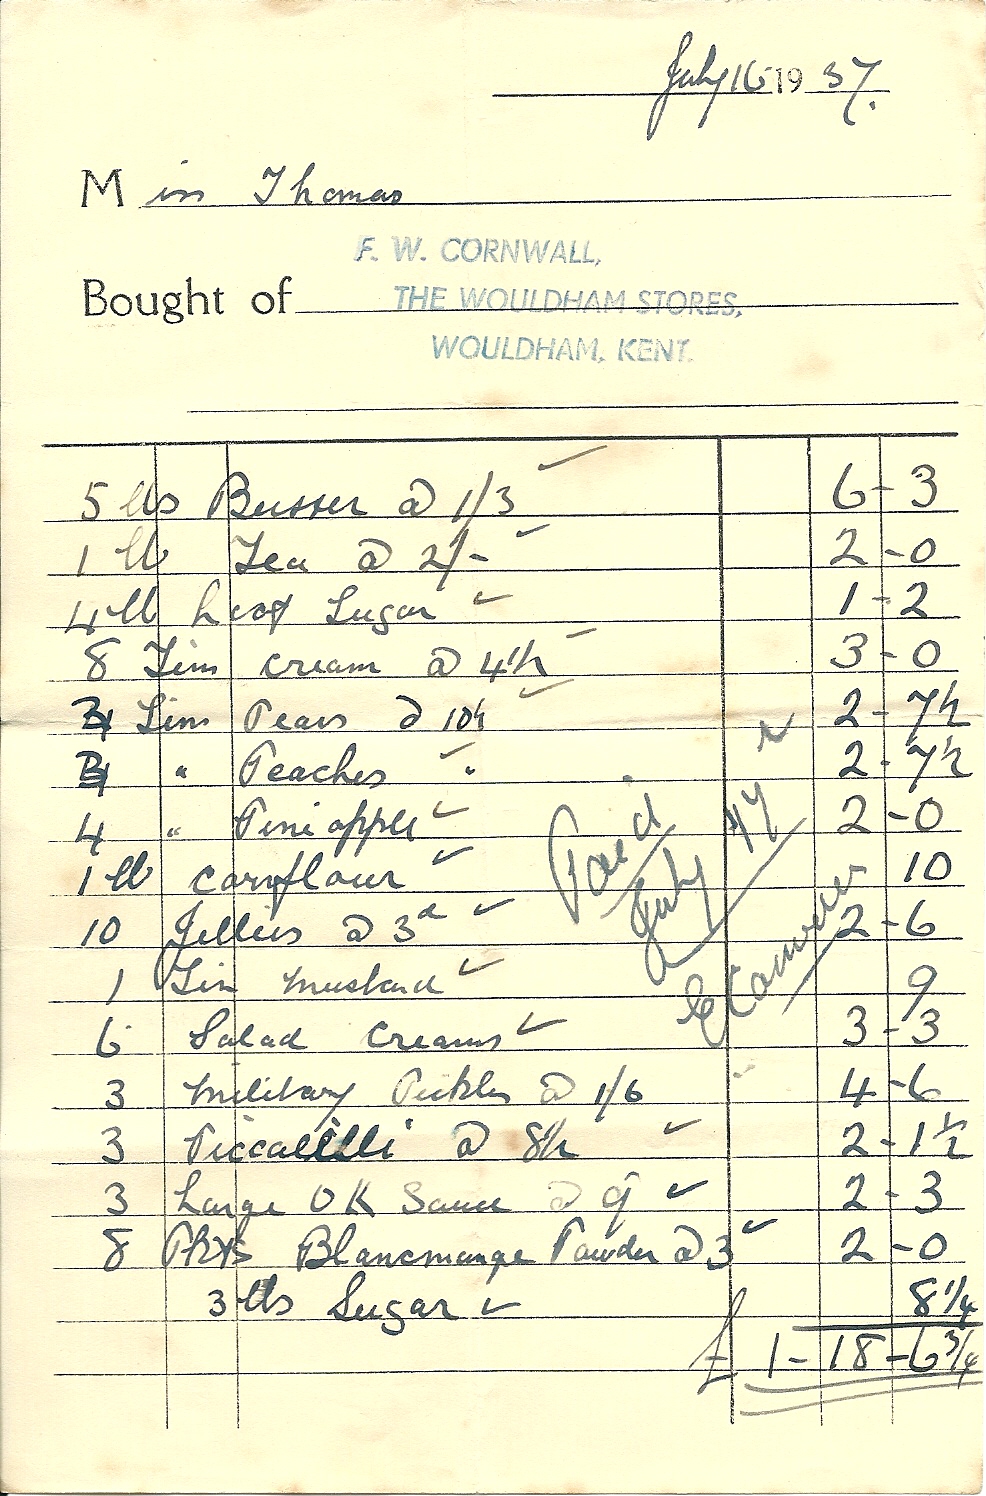 July 16 1937.
Miss Thomas
F. W. CORNWALL,
Bought of THE WOULDHAM STORES,
WOULDHAM, KENT.
5 lbs Butter @ 1/3 ✓ 6-3
1 lb Tea @ 2/- ✓ 2-0
4 lb Loaf Sugar ✓ 1-2
8 Tins Cream @ 4½ ✓ 3-0
Tins Pears @ 10½ ✓ 2-7½
" Peaches ✓ " 2-7½
4 " Pineapple ✓ 2-0
1 lb Cornflour ✓ 10
10 Jellies @ 3d ✓ 2-6
1 Tin Mustard ✓ 9
6 Salad Creams ✓ 3-3
3 Military Pickles @ 1/6 4-6
3 Piccalilli @ 8½ ✓ 2-1½
3 Large OK Sauce @ 9 ✓ 2-3
8 Pkts Blancmange Powder @ 3 ✓ 2-0
3 lbs Sugar ✓ 8¼
£ 1-18-6¾
Paid
July